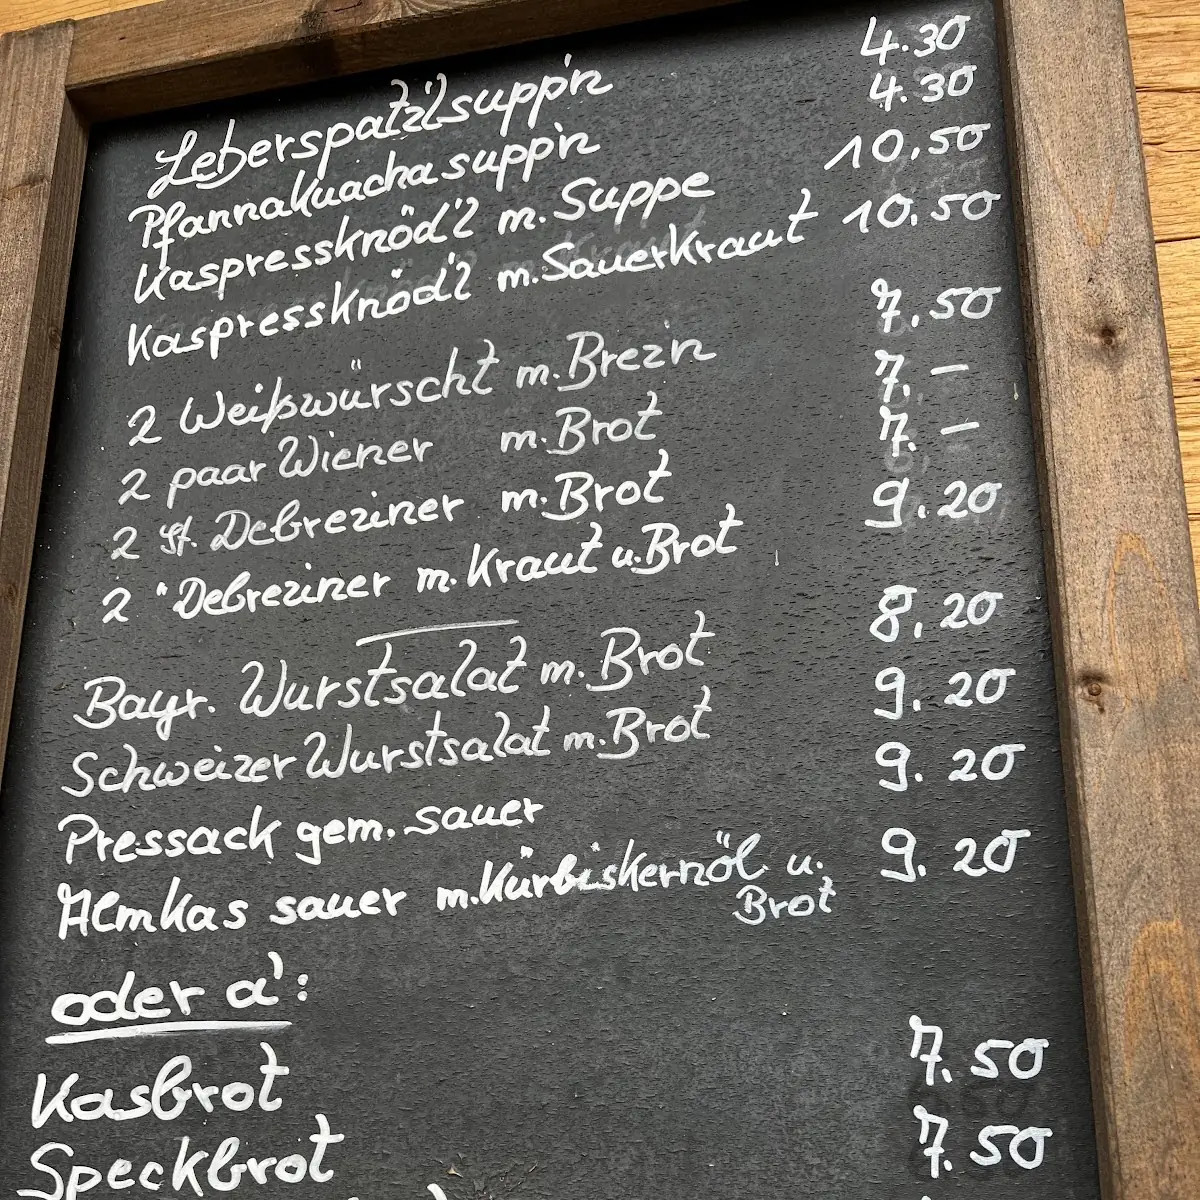 Leberspatz'lsupp'n 4.30
Pfannakuachasupp'n 4.30
Kaspressknöd'l m. Suppe 10,50
Kaspressknöd'l m. Sauerkraut 10.50
2 Weißwürscht m. Brez'n 7.50
2 paar Wiener m. Brot 7.–
2 St. Debreziner m. Brot 7.–
2 " Debreziner m. Kraut u. Brot 9.20
Bayr. Wurstsalat m. Brot 8.20
Schweizer Wurstsalat m. Brot 9.20
Pressack gem. sauer 9.20
Almkas sauer m. Kürbiskernöl u. 9.20
Brot
oder a':
Kasbrot 7.50
Speckbrot 7.50